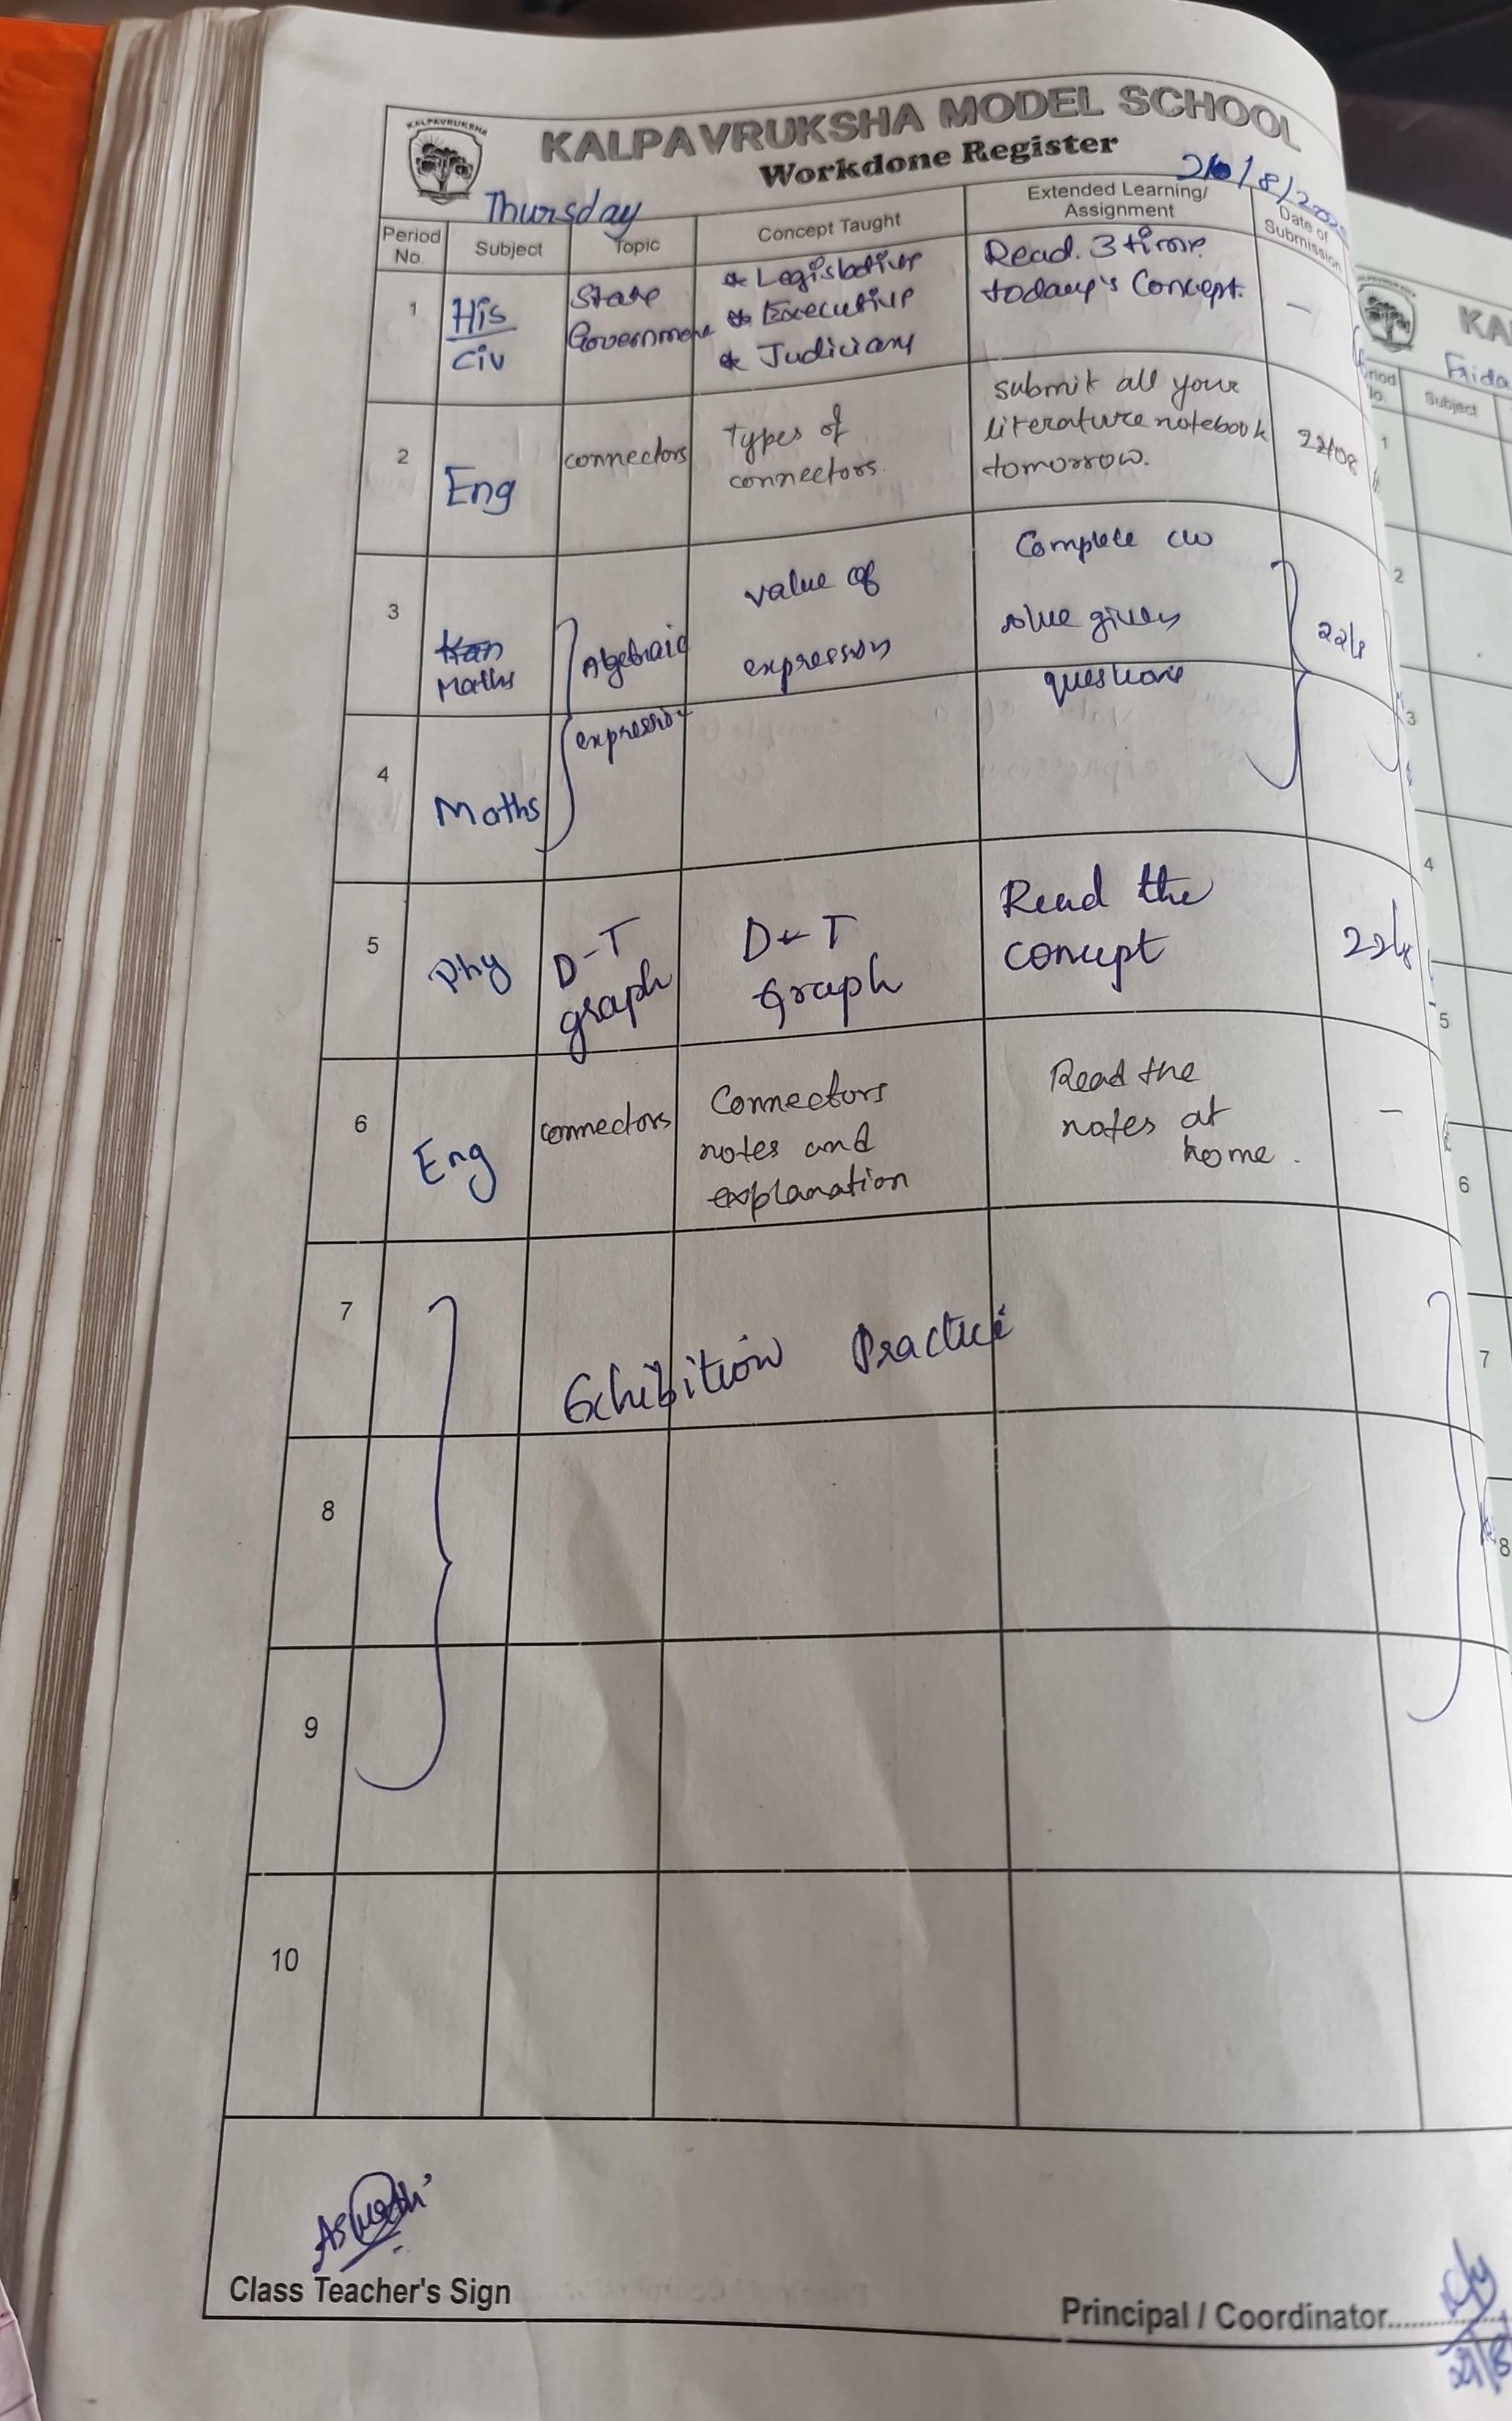 KALPAVRUKSHA
KALPAVRUKSHA MODEL SCHOOL
Workdone Register
Thursday
21/8/202
Period No.
Subject
Topic
Concept Taught
Extended Learning/ Assignment
Date of Submission
1
His
Civ
State
Government
* Legislative
* Executive
* Judiciary
Read. 3 time
today's Concept.
–
2
Eng
connectors
Types of
connectors.
submit all your
literature notebook
tomorrow.
22/08
3
Kan
Maths
Algebraic
expression
value of
expression
Complete cw
given
questions
22/8
4
Maths
5
Phy
D-T
graph
D-T
Graph
Read the
concept
22/8
6
Eng
connectors
Connectors
notes and
explanation
Read the
notes at
home.
–
7
Exhibition Practice
8
9
10
Class Teacher's Sign
Principal / Coordinator
KA
Frida
Subject
1
2
3
4
5
6
7
8